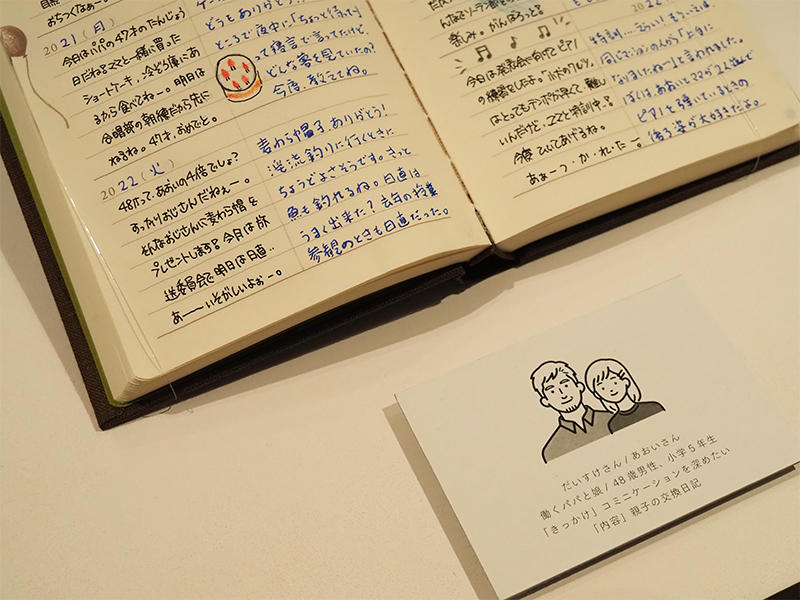 おちつくなぁー。
どうもありがとう!
20 21 (月)
今日はパパの47才のたんじょう
日だね。ママと一緒に買った
ショートケーキ、冷ぞう庫にあ
るから食べてねー。明日は
合唱部の朝練だから先に
ねるね。47才、おめでと。
ところで夜中に「ちょっと待って」
って寝言で言ってたけど、
どんな夢を見ていたの?
今度、教えてね。
20 22 (火)
48才って、あおいの4倍でしょ?
すっかりおじさんだねぇー。
そんなおじさんに麦わら帽を
プレゼントします。今日は放
送委員会で明日は日直…
あーーいそがしいよぉー。
麦わら帽子、ありがとう!
渓流釣りに行くときに
ちょうどよさそうです。きっと
魚も釣れるね。日直は
うまく出来た?去年の授業
参観のときも日直だった。
楽しみ。がんばろっと。
今日は発表会に向けてピアノ
の練習をしたよ。
はとってもテンポが早くて、難し
いんだけど、ママと特訓中。
今度ひいてあげるね。
あぁーつ・か・れ・たー。
なりましたねー」と言われました。
ぼくは、あおいとママが2人並んで
ピアノを弾いているときの
後ろ姿が大好きだよ。
だいすけさん/あおいさん
働くパパと娘/48歳男性、小学5年生
「きっかけ」コミニケーションを深めたい
「内容」親子の交換日記